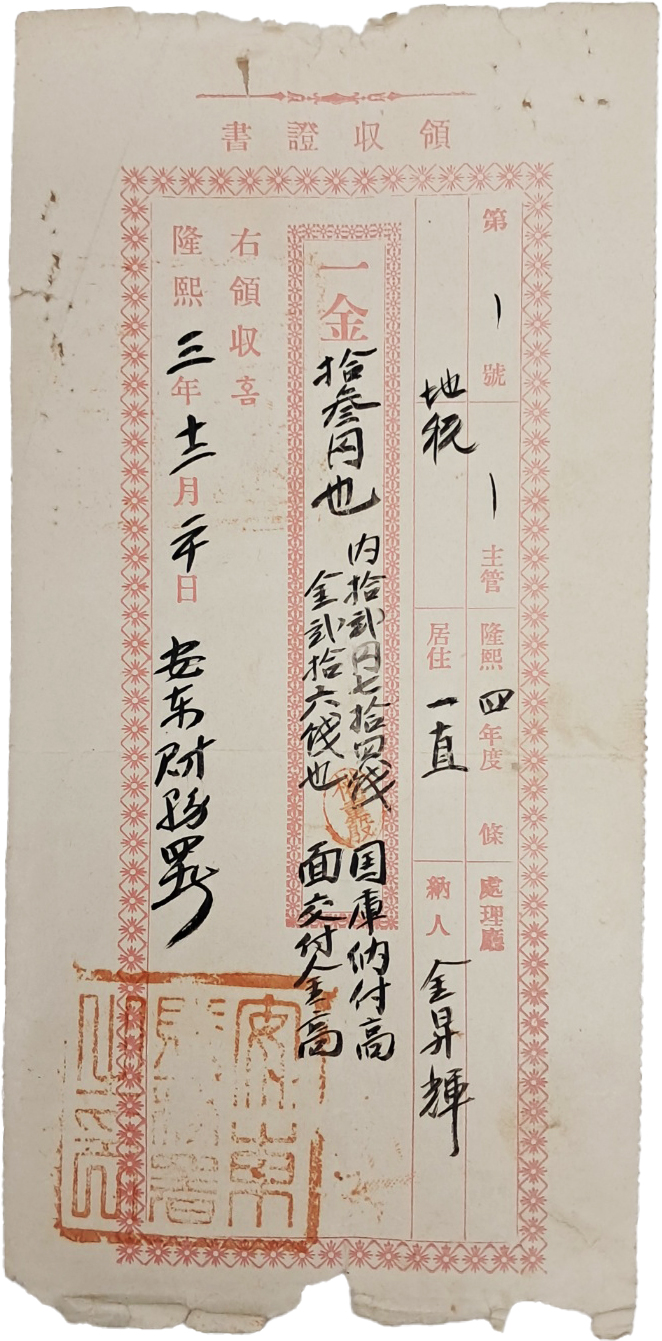 領収證書
第 一 號 一 主管 隆熙 四 年度 條 處理廳
地税 居住 一直 納人 金昇輝
一金 拾叄円也
内拾貳円七拾四戔 国庫納付高
金貳拾六戔也 面交付金高
右領収홈
隆熙 三 年 十二 月 二十 日 安东財務署
安東
財務署
之印